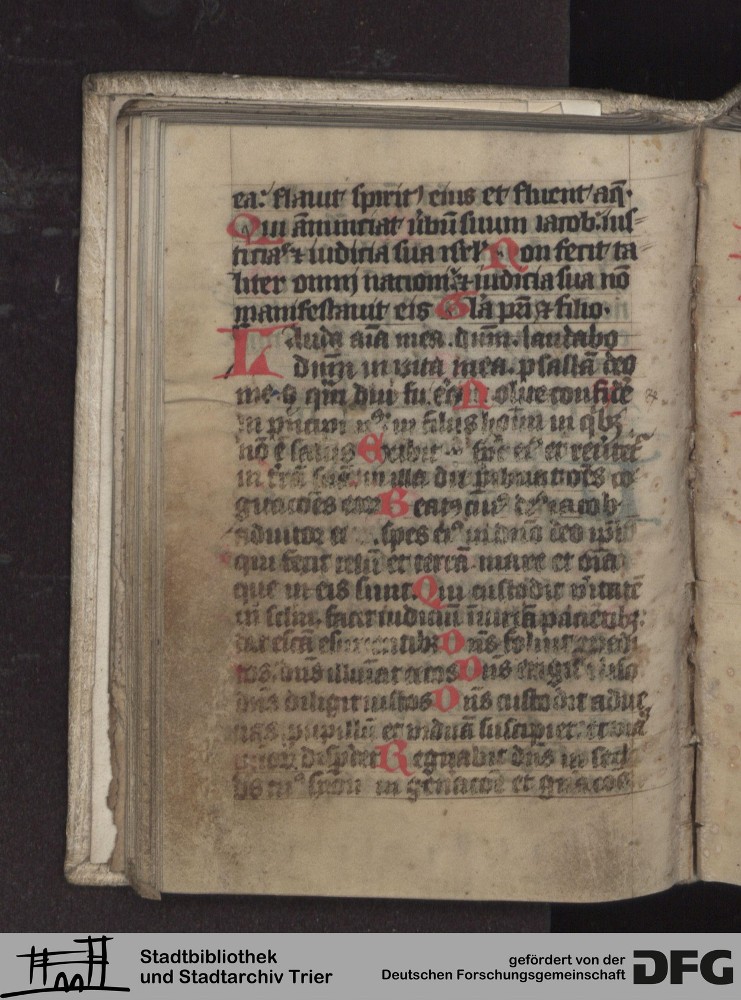 ea: flauit spirit eius et fluent aq̄.
Qui ān̄unciat ūbū suum iacob. ius
ticias ⁊ iudicia sua isrl. Non fecit ta
liter omni nationi ⁊ iudicia sua nō
manifestauit eis Gl̄a pr̄i ⁊ filio.
Lauda aīa mea. dn̄m. laudabo
dn̄m in uita mea. psallā deo
meo qm̄ diu fu. Nolite confide
in pn̄cipi in filiis hoīm in qib
nō ē salus Exibit sps et reūtet
in trā suā in illa die ꝑibunt oēs co
gitacōes eorꝫ Beatꝰ cuiꝰ deꝰ iacob
adiutor ei spes eiꝰ in dn̄o deo ipiꝰ
qui fecit celū et terrā. mare et oīa
que in eis sunt. Qui custodit ūitatē
in sclm. facit iudiciū iniuriā pacientibꝫ
dat escā esurientibꝫ Dn̄s soluit cōpedi
tos. dn̄s illuīat cecos Dn̄s erigit eliso
dn̄s diligit iustos Dn̄s custodit adue
nas. pupillū et viduā suscipiet. et via
disꝑdet Regnabit dn̄s in secl
deꝰ tuꝰ syon in gn̄acōe et gn̄acoē
Stadtbibliothek
und Stadtarchiv Trier
gefördert von der
Deutschen Forschungsgemeinschaft
DFG